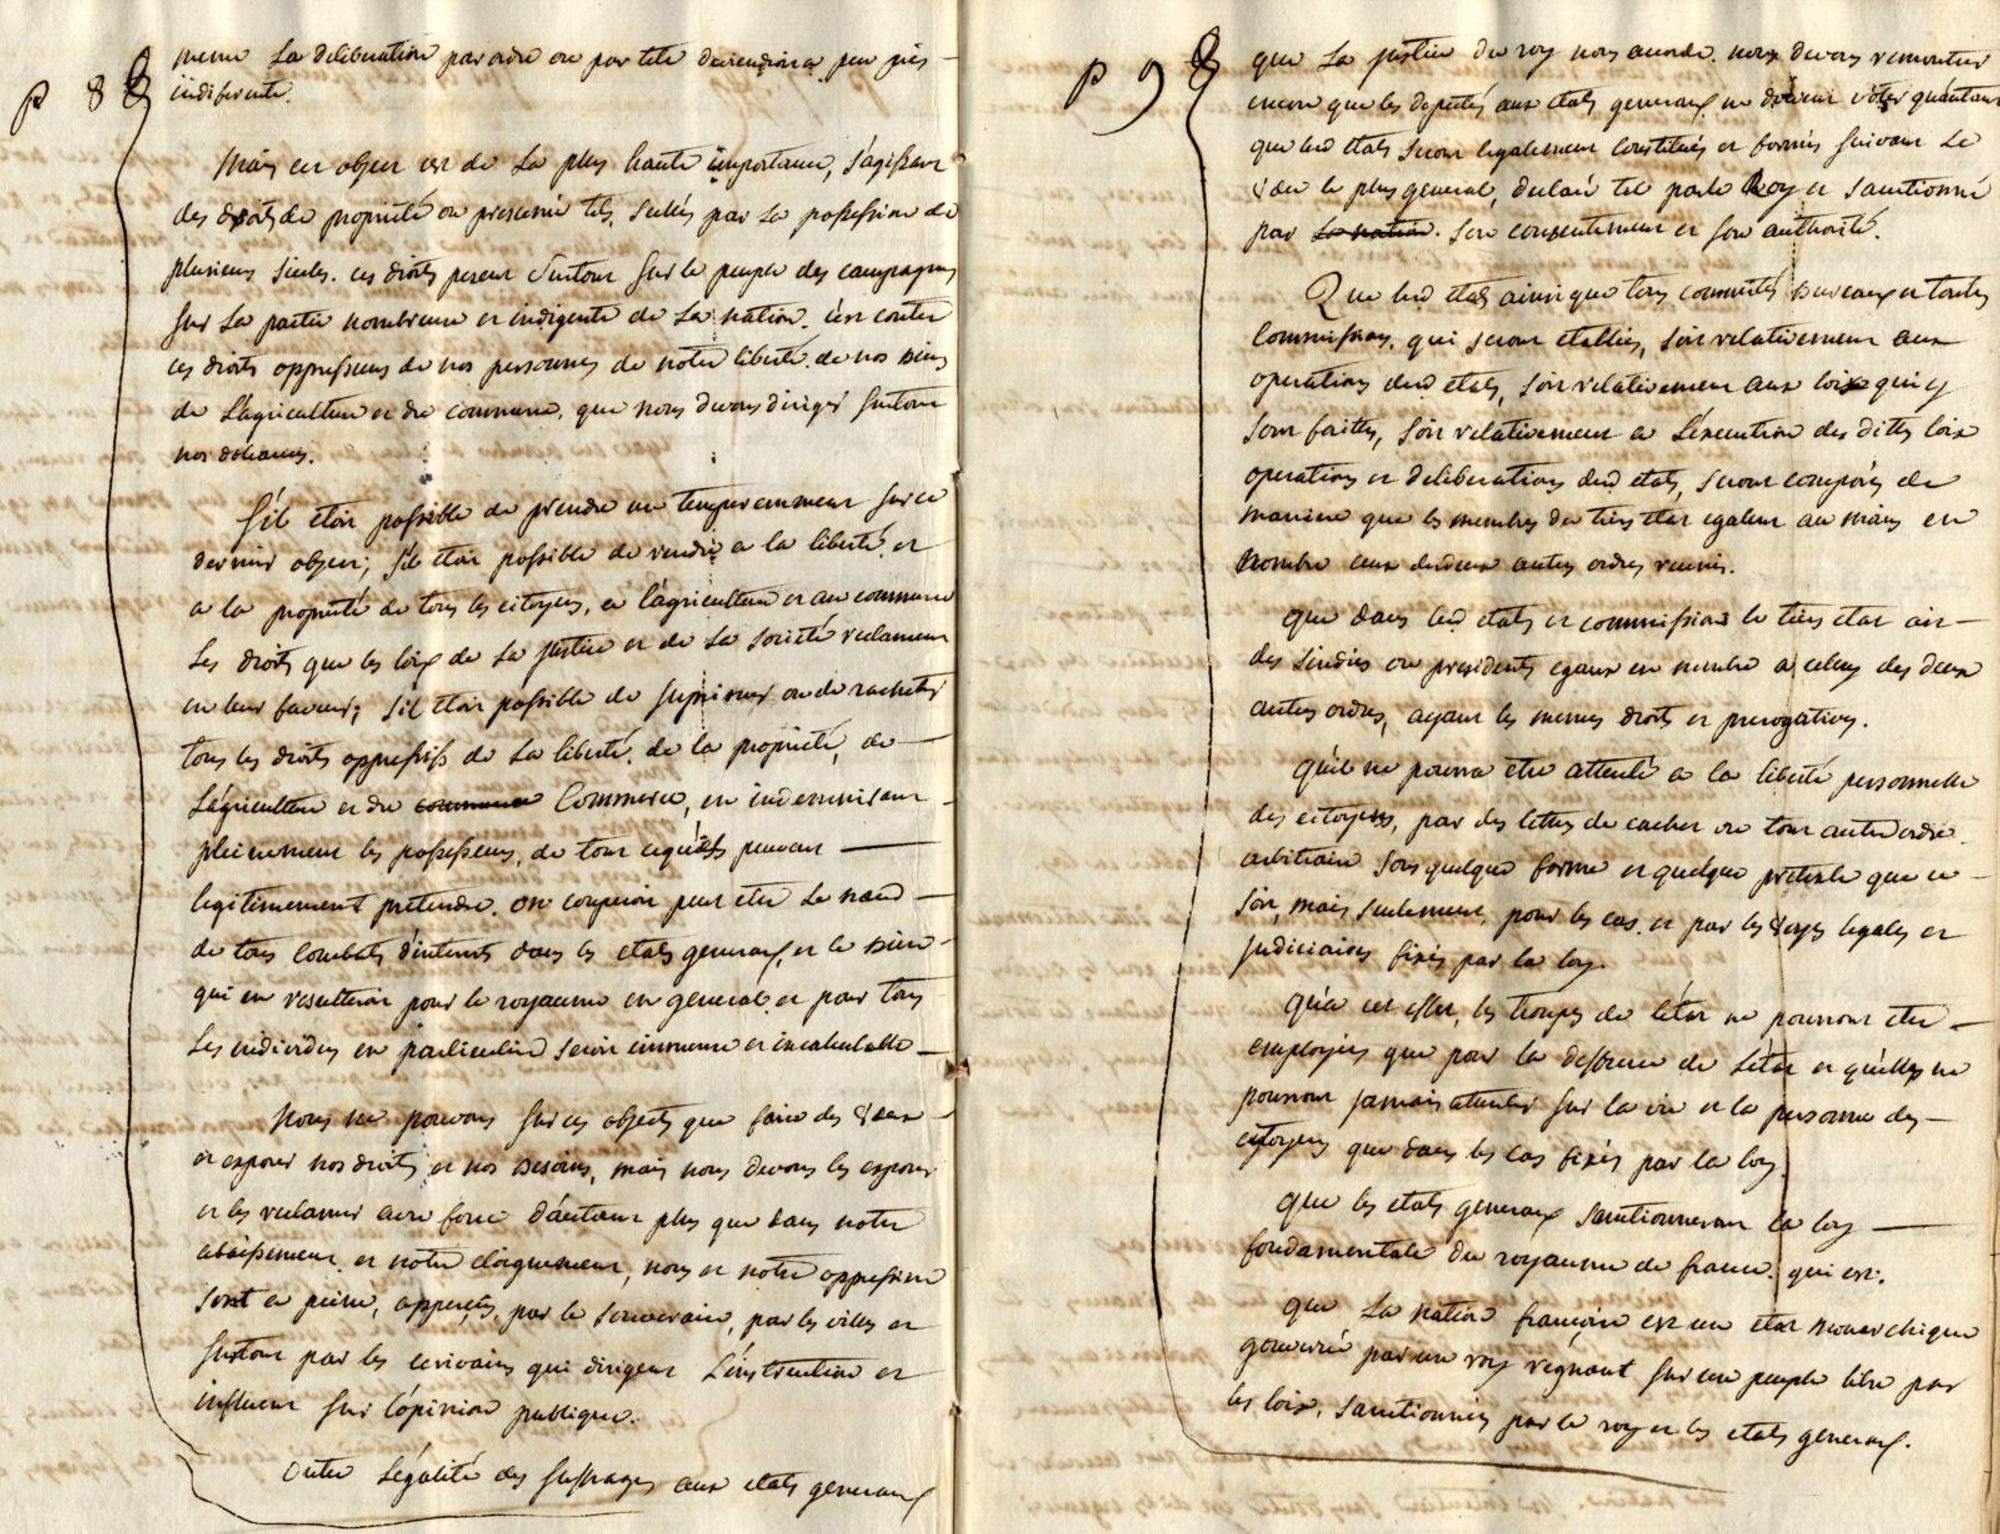 p 8
meme La deliberation par ordre ou par tete deviendroit a peu près
indiferente.
Mais cet objet est de La plus haute importance, s'agissant
des droits de propriété ou presumé tels, scellés par La possession de
plusieurs siecles. ces droits pesent surtout sur le peuple des campagnes
sur La partie nombreuse et indigente de La nation. c'est contre
ces droits oppresseurs de nos personnes de notre liberté de nos biens
de L'agriculture et du commerce, que nous devons diriger surtout
nos doleances.
S'il etoit possible de prendre un temperemment sur ce
dernier objet; s'il etoit possible de rendre a la liberté et
a la propriété de tous les citoyens, a l'agriculture et au commerce
Les droits que les loix de La justice et de La société reclament
en leur faveur; s'il etoit possible de suprimer ou de racheter
tous les droits oppressifs de La liberté, de la propriété, de
L'agriculture et du commerce Commerce, en indemnisant
pleinement les possesseurs, de tout ce qu'ils peuvent
legitimement pretendre. on couperoit peut etre Le nœud
de tous Combats d'interets dans les etats generaux, et le bien
qui en resulteroit pour le royaume en general et pour tous
Les individus en particulier seroit immense et incalculable
Nous ne pouvons sur ces objects que faire des vœux
et exposer nos droits et nos besoins, mais nous devons les exposer
et les reclamer avec force d'autant plus que dans notre
abaissement et notre eloignement, nous et notre oppression
sont a peine, apperçus, par le souverain, par les villes et
surtout par les ecrivains qui dirigent L'instruction et
influent sur l'opinion publique.
Outre L'égalité des suffrages aux etats generaux
p 9
que La justice du roy nous accorde. nous devons remontrer
encore que les deputés aux etats generaux ne doivent voter qu'autant
que lesd etats seront legalement constitués et formés suivant Le
vœu le plus general, declaré tel par le Roy et sanctionné
par la nation. son consentement et son authorité.
Que lesd etats ainsi que tous committés bureaux et toutes
Commissions, qui seront etablies, soit relativement aux
operations desd etats, soit relativement aux loix qui y
sont faittes, soit relativement a L'execution des dittes loix
operations et deliberations desd etats, seront composés de
maniere que les membres du tiers etat egalent au moins en
Nombre ceux desdeux autres ordres reunis.
que dans lesd etats et commissions le tiers etat ait
des sindics ou presidents egaux en nombre a celuy des deux
autres ordres, ayant les memes droits et prerogatives.
qu'il ne pourra etre attenté a la liberté personnelle
des citoyens, par des lettres de cachet ou tout autre ordre
arbitraire sous quelque forme et quelque pretexte que ce
soit, mais seulement, pour les cas et par les voyes legales et
judiciaires fixés par la loy.
qu'a cet effet, les troupes de l'état ne pourront etre
employées que pour la deffence de L'état et qu'elles ne
pourront jamais attenter sur la vie et la personne des
citoyens que dans les cas fixés par la loy.
que les etats generaux sanctionneront la loy
fondamentale du royaume de france. qui est.
que La nation françoise est un etat monarchique
gouverné par un roy régnant sur un peuple libre par
les loix, sanctionnées par le roy et les etats generaux.